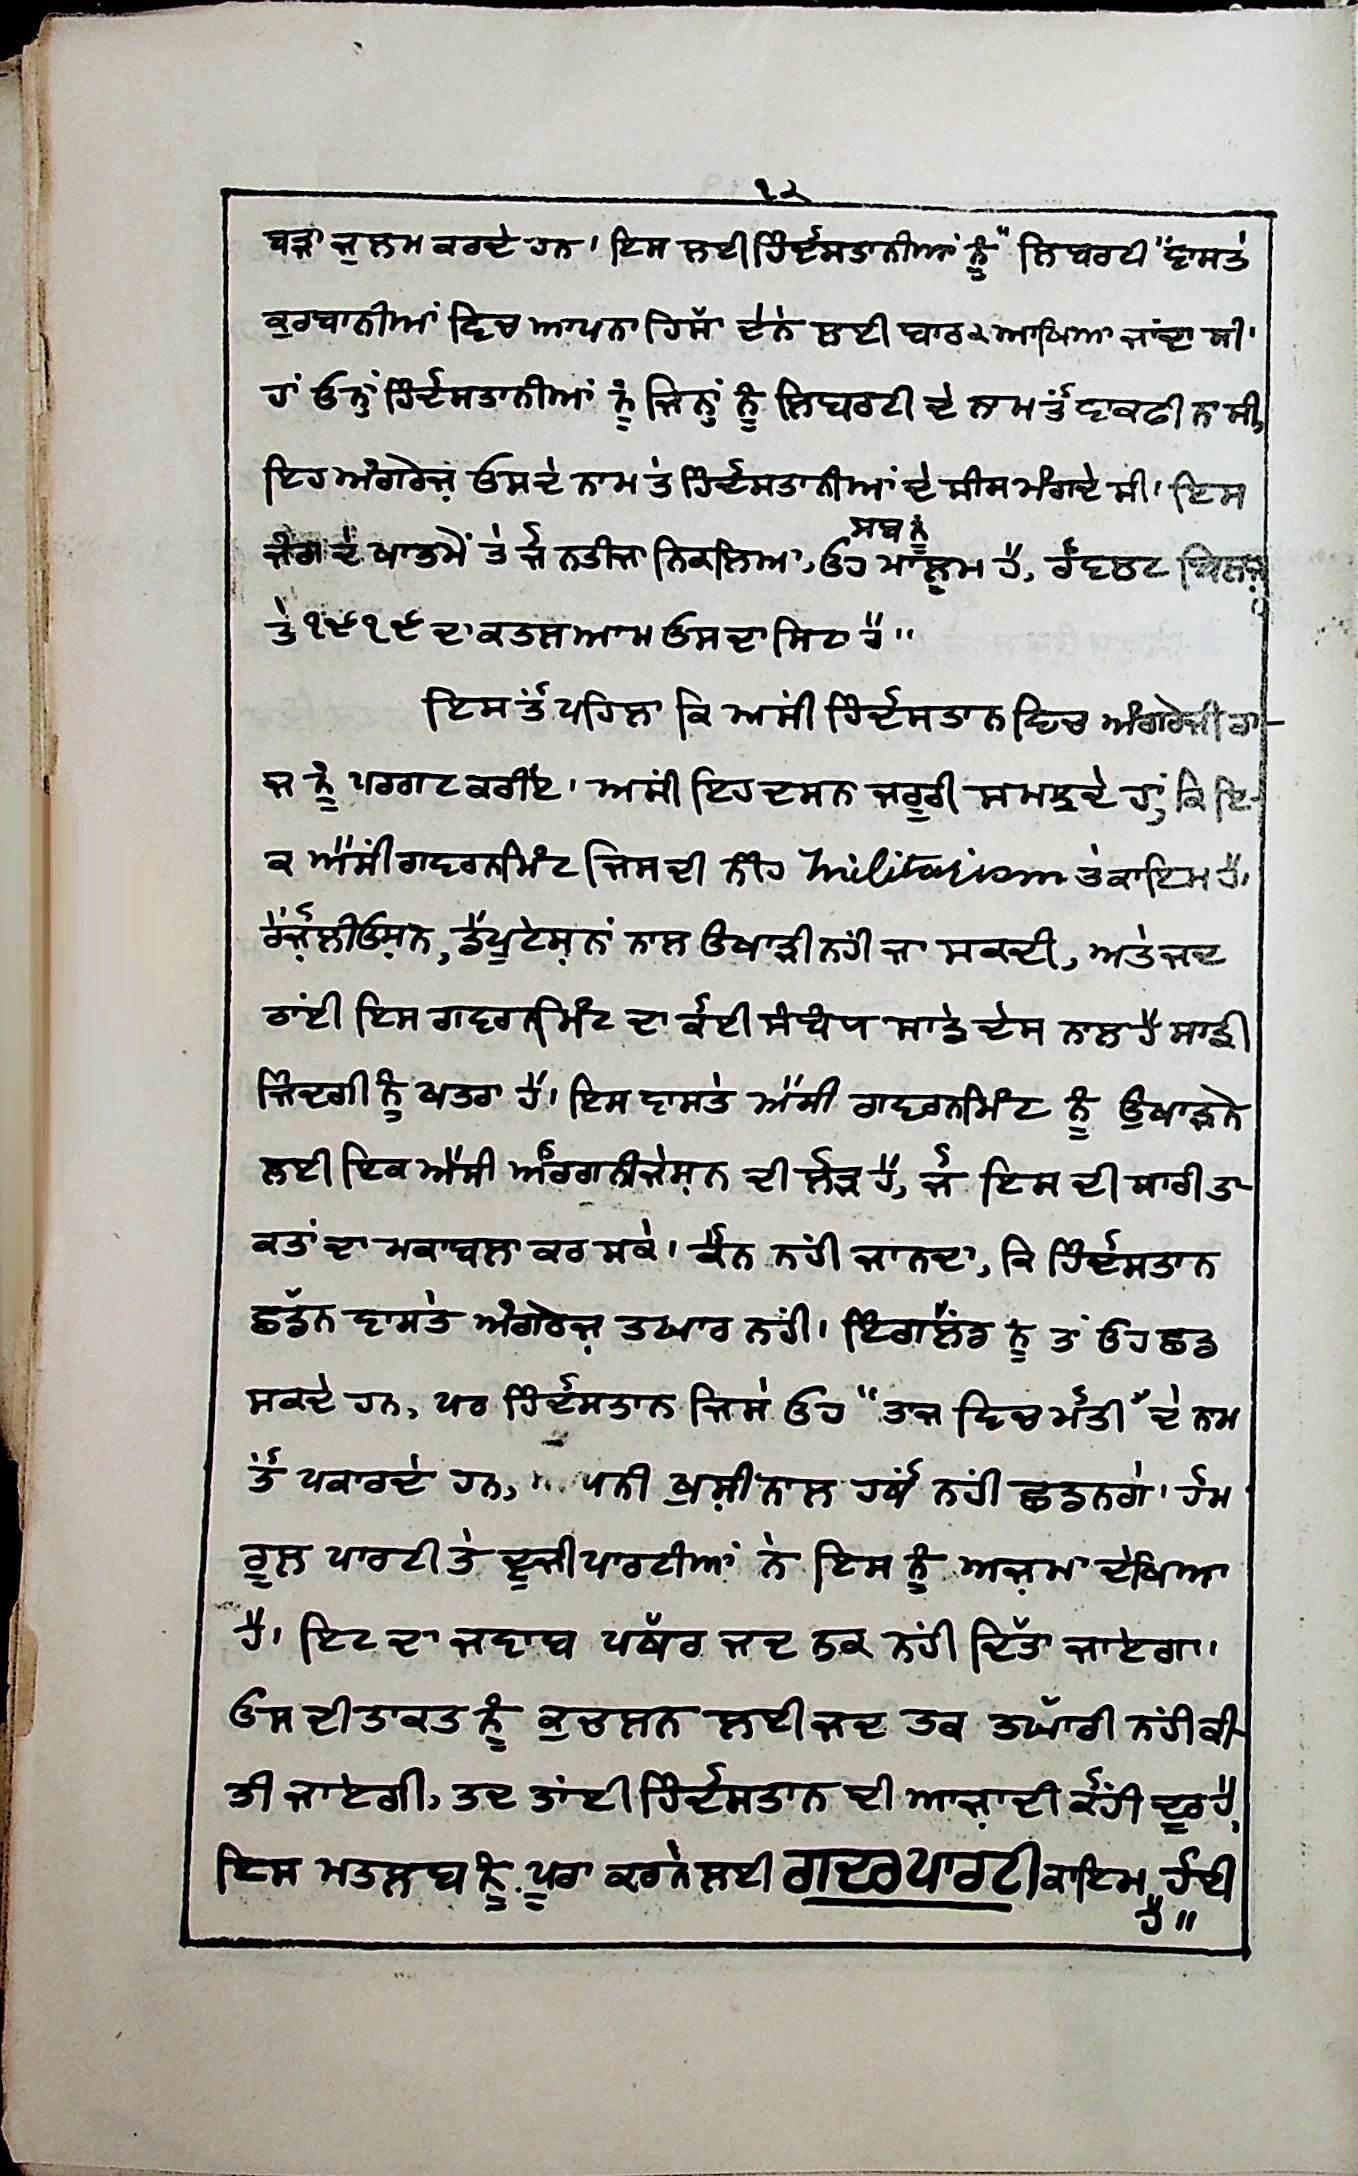 ੧੨
ਬੜਾ ਜ਼ੁਲਮ ਕਰਦੇ ਹਨ। ਇਸ ਲਈ ਹਿੰਦੋਸਤਾਨੀਆਂ ਨੂੰ "ਲਿਬਰਟੀ" ਵਾਸਤੇ
ਕੁਰਬਾਨੀਆਂ ਵਿਚ ਆਪਨਾ ਹਿਸਾੱ ਦੇਨੇ ਲਈ ਬਾਰ੨ ਆਖਿਆ ਜਾਂਦਾ ਸੀ।
ਹਾਂ ਓਨ੍ਹਾਂ ਹਿੰਦੋਸਤਾਨੀਆਂ ਨੂੰ ਜਿਨ੍ਹਾਂ ਨੂੰ ਲਿਬਰਟੀ ਦੇ ਨਾਮ ਤੋਂ ਵਾਕਫੀ ਨਾ ਸੀ,
ਇਹ ਅੰਗਰੇਜ਼ ਓਸ ਦੇ ਨਾਮ ਤੇ ਹਿੰਦੋਸਤਾਨੀਆਂ ਦੇ ਸੀਸ ਮੰਗਦੇ ਸੀ। ਇਸ
ਸਬ ਨੂੰ
ਜੰਗ ਦੇ ਖਾਤਮੇਂ ਤੇ ਜੋ ਨਤੀਜਾ ਨਿਕਲਿਆ, ਓਹ ਮਾਲੂਮ ਹੈ, ਰੌਵਲਟ ਬਿਲਜ਼
ਤੇ ੧੯੧੯ ਦਾ ਕਤਲਆਮ ਓਸ ਦਾ ਸਿਟਾ ਹੈ॥
ਇਸ ਤੋਂ ਪਹਿਲਾ ਕਿ ਅਸੀਂ ਹਿੰਦੋਸਤਾਨ ਵਿਚ ਅੰਗਰੇਜੀ ਰਾ-
ਜ ਨੂੰ ਪਰਗਟ ਕਰੀਏ। ਅਸੀਂ ਇਹ ਦਸਨ ਜਰੂਰੀ ਸਮਝਦੇ ਹਾਂ, ਕਿ ਇ-
ਕ ਐਸੀਂ ਗਵਰਨਮਿੰਟ ਜਿਸ ਦੀ ਨੀਂਹ militarism ਤੇ ਕਾਇਮ ਹੈ,
ਰੈਜ਼ੋਲੀਓਸ਼ਨ, ਡੈਪੁਟੇਸ਼ਨਾਂ ਨਾਲ ਉਖਾੜੀ ਨਹੀਂ ਜਾ ਸਕਦੀ, ਅਤੇ ਜਦ
ਤਾਂਈ ਇਸ ਗਵਰਨਮਿੰਟ ਦਾ ਕੋਈ ਸੰਬੰਧ ਸਾਡੇ ਦੇਸ ਨਾਲ ਹੈ ਸਾਡੀ
ਜਿੰਦਗੀ ਨੂੰ ਖਤਰਾ ਹੈ। ਇਸ ਵਾਸਤੇ ਐਸੀ ਗਵਰਨਮਿੰਟ ਨੂੰ ਉਖਾੜਨੇ
ਲਈ ਇਕ ਐਸੀ ਔਰਗਨੀਜੇਸ਼ਨ ਦੀ ਲੋੜ ਹੈ, ਜੋ ਇਸ ਦੀ ਸਾਰੀ ਤਾ-
ਕਤਾਂ ਦਾ ਮਕਾਬਲਾ ਕਰ ਸਕੇ। ਕੌਨ ਨਹੀਂ ਜਾਨਦਾ, ਕਿ ਹਿੰਦੋਸਤਾਨ
ਛਡੱਨ ਵਾਸਤੇ ਅੰਗਰੇਜ਼ ਤਯਾਰ ਨਹੀਂ। ਇੰਗਲੈਂਡ ਨੂੰ ਤਾਂ ਓਹ ਛਡ
ਸਕਦੇ ਹਨ, ਪਰ ਹਿੰਦੋਸਤਾਨ ਜਿਸੇ ਓਹ "ਤਾਜ ਵਿਚ ਮੋਤੀ" ਦੇ ਨਾਮ
ਤੋਂ ਪਕਾਰਦੇ ਹਨ, ਪਨੀ ਖੁਸ਼ੀ ਨਾਲ ਹਥੋਂ ਨਹੀਂ ਛਡਨਗੇ। ਹੋਮ
ਰੂਲ ਪਾਰਟੀ ਤੇ ਦੂਜੀ ਪਾਰਟੀਆਂ ਨੇ ਇਸ ਨੂੰ ਅਜ਼ਮਾ ਦੇਖਿਆ
ਹੈ। ਇਟ ਦਾ ਜਵਾਬ ਪਥੱਰ ਜਦ ਤਕ ਨਹੀਂ ਦਿੱਤਾ ਜਾਏਗਾ॥
ਓਸ ਦੀ ਤਾਕਤ ਨੂੰ ਕੁਚਲਨ ਲਈ ਜਦ ਤਕ ਤਯਾੱਰੀ ਨਹੀਂ ਕੀ-
ਤੀ ਜਾਏਗੀ, ਤਦ ਤਾਂਈ ਹਿੰਦੋਸਤਾਨ ਦੀ ਆਜ਼ਾਦੀ ਕੋਹੀਂ ਦੂਰ ਹੈ,
ਇਸ ਮਤਲਬ ਨੂੰ ਪੂਰਾ ਕਰਨੇ ਲਈ ਗਦਰ ਪਾਰਟੀ ਕਾਇਮ ਹੋਈ
ਹੈ॥